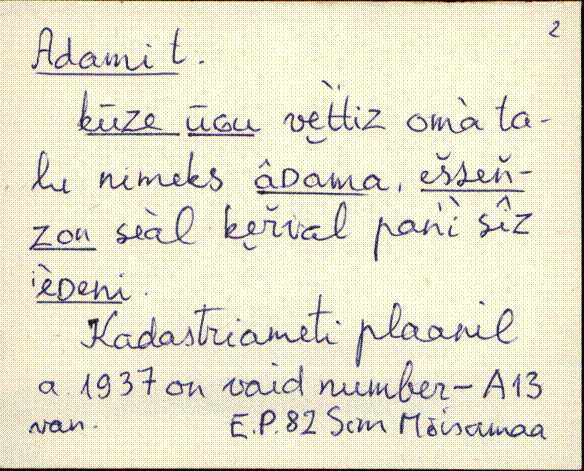 2
Adami t.
kūze ūGu vèttiz omà ta-
lu nimeks âDama, eššeň-
zon seàl keřval pań̀i sîz
ˈèDeni.
Kadastriameti plaanil
a. 1937 on vaid number – A13
van. E.P. 82 Som Mõisamaa